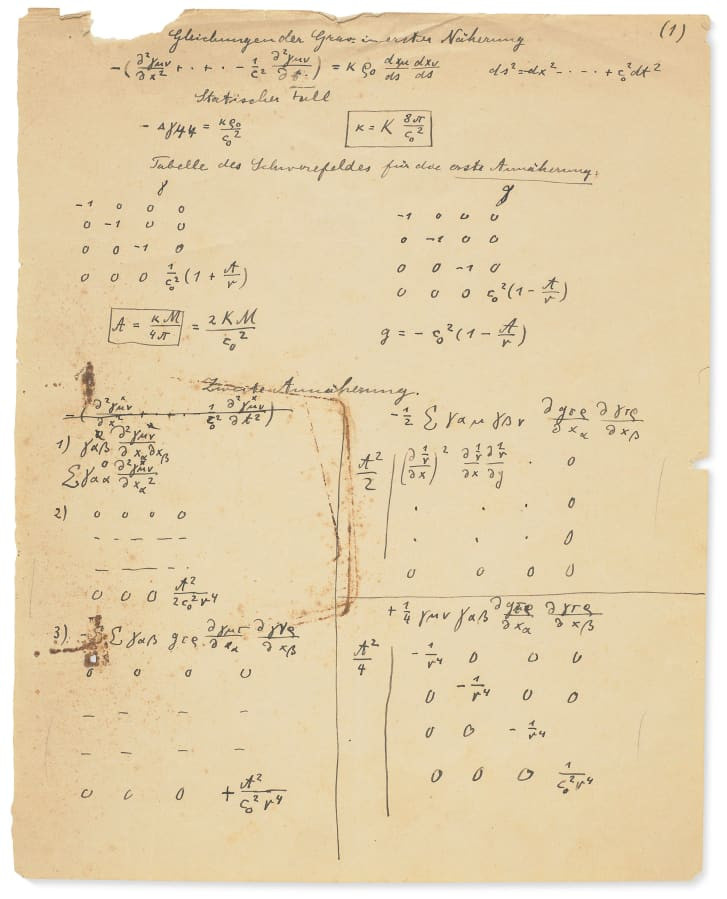 (1)
Gleichungen der Grav. in erster Näherung
-(∂²γμν/∂x² + · + · - 1/c² ∂²γμν/∂t²) = κ ρ₀ dxμ/ds dxν/ds    ds² = -dx² - · · + c₀² dt²
Statischer Fall
- Δγ44 = κρ₀/c₀²    κ = K 8π/c₀²
Tabelle des Schwerefeldes für die erste Annäherung.
γ    g
-1 0 0 0    -1 0 0 0
0 -1 0 0    0 -1 0 0
0 0 -1 0    0 0 -1 0
0 0 0 1/c₀² (1 + A/r)    0 0 0 c₀² (1 - A/r)
A = κM/4π = 2KM/c₀²    g = - c₀² (1 - A/r)
Zweite Annäherung.
-(∂²γμν/∂x² + · + · 1/c₀² ∂²γμν/∂t²)
1) γαβ ∂²γμν/∂xα∂xβ
Σγαα ∂²γμν/∂xα²
2) 0 0 0 0
- - - -
- - - -
0 0 0 A²/2c₀²r⁴
3). - Σ γαβ gτρ ∂γμτ/∂xα ∂γνρ/∂xβ
0 0 0 0
- - - -
- - - -
0 0 0 + A²/c₀²r⁴
-1/2 Σ γαμ γβν ∂gτρ/∂xα ∂γτρ/∂xβ
A²/2 (∂1/r/∂x)² ∂1/r/∂x ∂1/r/∂y · 0
· · · 0
· · · 0
0 0 0 0
+ 1/4 γμν γαβ ∂gτρ/∂xα ∂γτρ/∂xβ
A²/4 -1/r⁴ 0 0 0
0 -1/r⁴ 0 0
0 0 -1/r⁴
0 0 0 1/c₀²r⁴